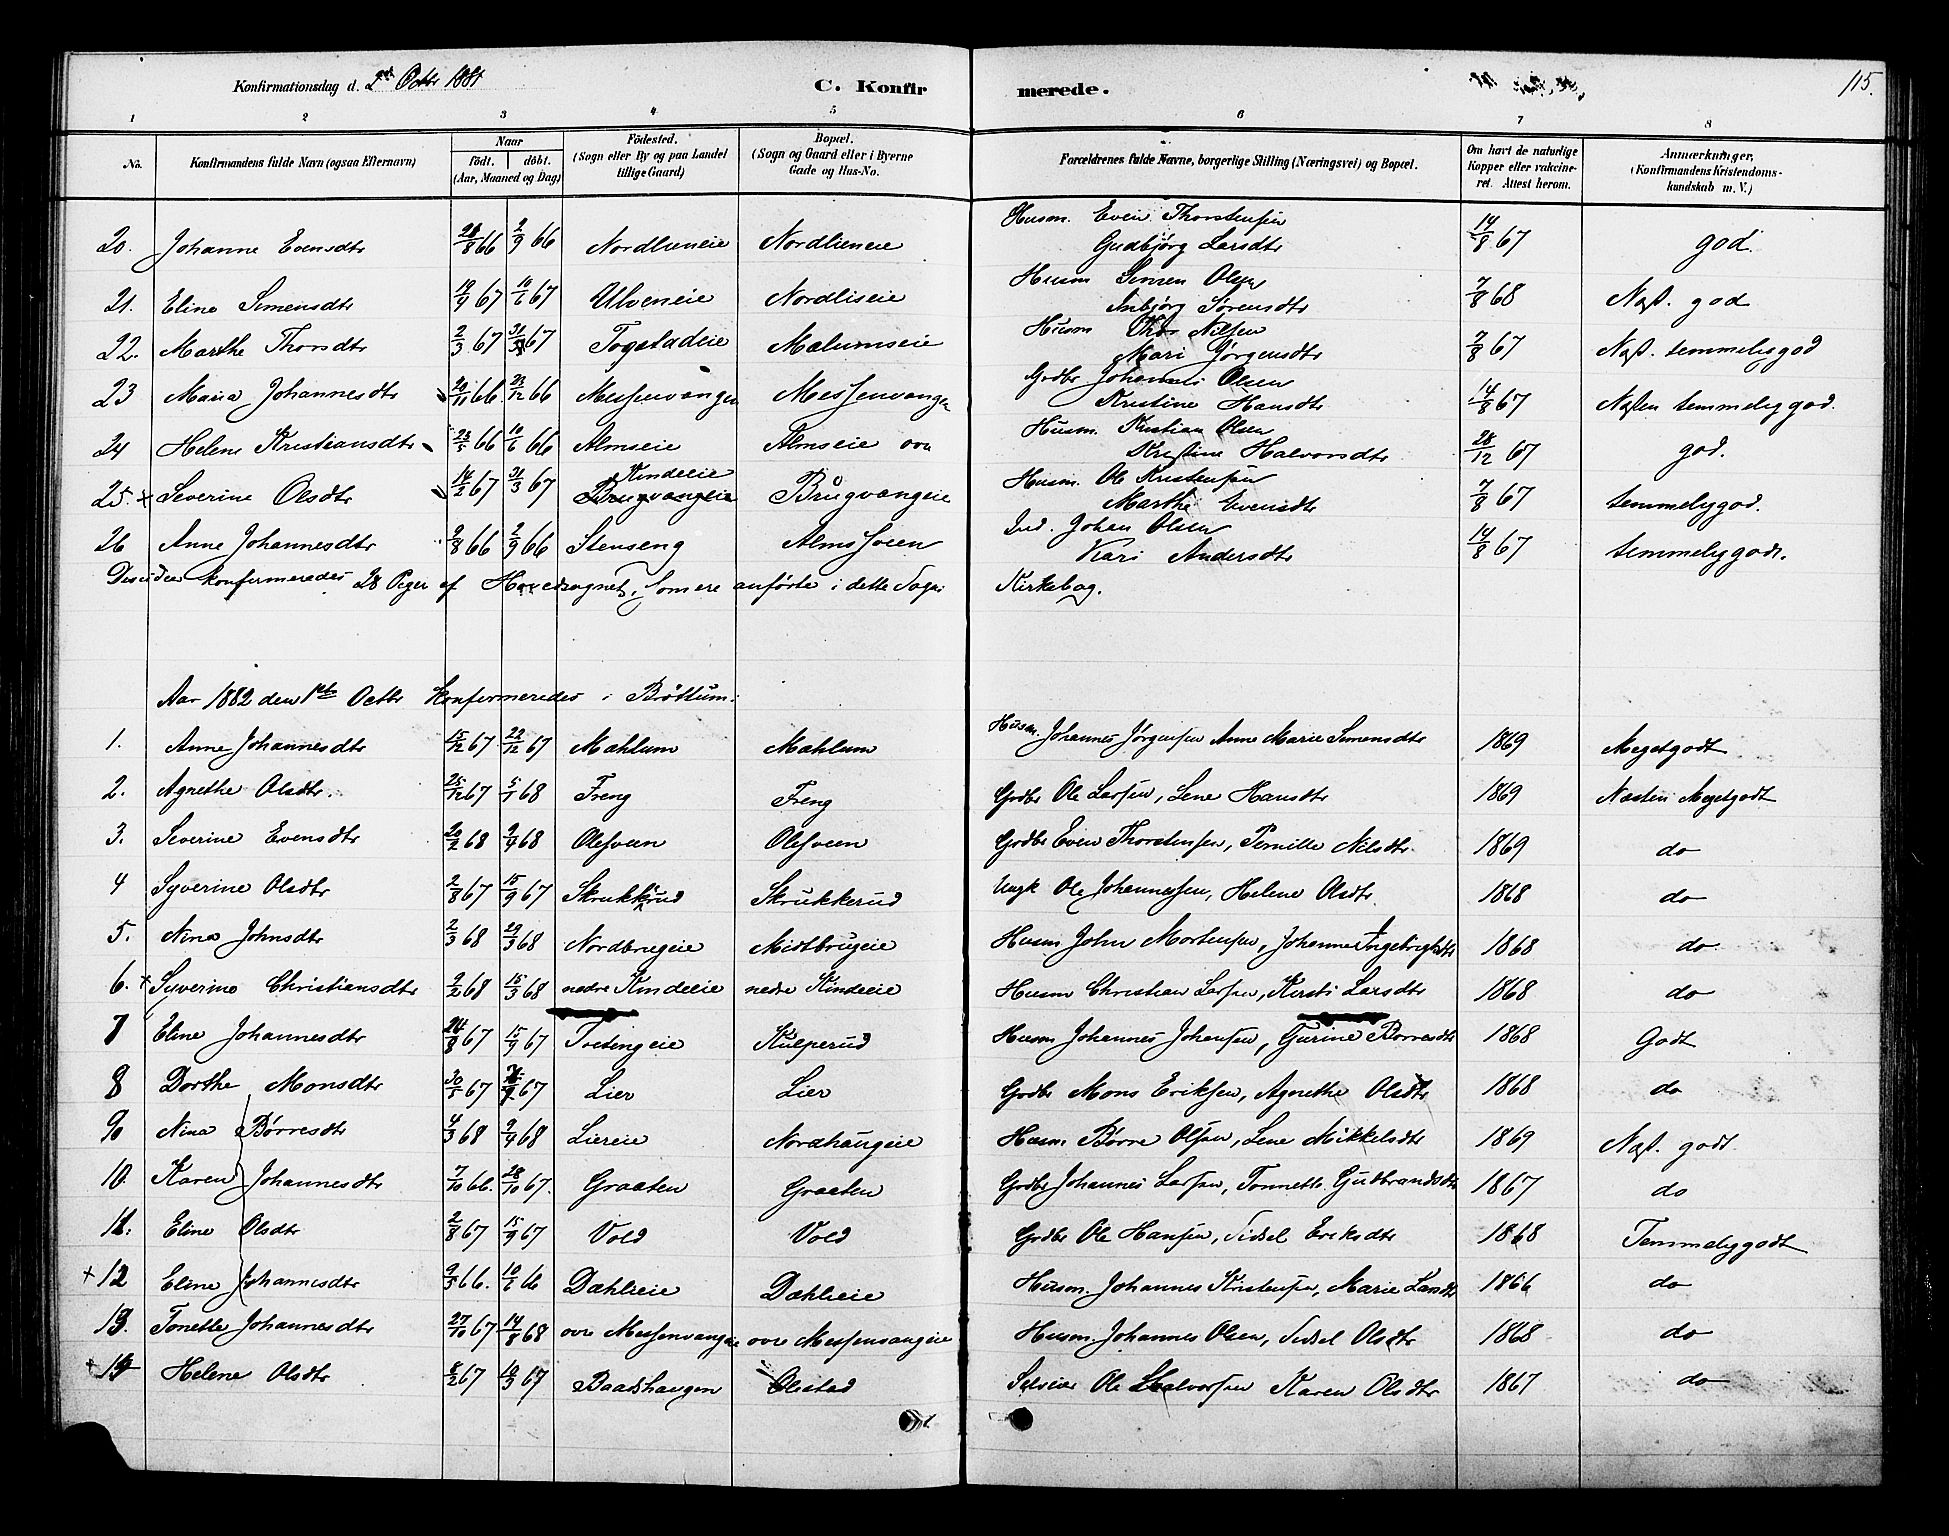 Konfirmationsdag d. 2den Octbr 1881 C. Konfirmerede. 115.
1 2 3 4 5 6 7 8
No. Konfirmandens fulde Navn (ogsaa Efternavn) Naar födt. döbt. (Aar, Maaned og Dag) Födested. (Sogn eller By og paa Landet tillige Gaard) Bopæl. (Sogn og Gaard eller i Byerne Gade og Hus-No. Forældrenes fulde Navne, borgerlige Stilling (Næringsvei) og Bopæl. Om havt de naturlige Kopper eller vakcineret. Attest herom. Anmærkninger, (Konfirmandens Kristendomskundskab m. V.)
20. Johanne Evensdtr 28/8 66 2/9 66 Nordlieneie Nordlieneie Husm. Even Thorstensen Gudbjørg Larsdtr 14/8 67 god
21. Eline Simensdtr 67 67 Ulveneie Nordlieie Husm Simen Olsen Anbjørg Sørensdtr 7/8 68 Næst. god
22. Marthe Thorsdtr 2/3 67 31/3 67 Togstadeie Malumseie Husm Thor Nilsen Mari Jørgensdtr 7/8 67 Næst. temmelig god
23 Maria Johannesdtr 20/11 66. 23/12 66 Messenvangen Messenvangen Gdbr Johannes Olsen Kristine Hansdtr 14/8 67 Næsten temmelig god.
24 Helene Kristiansdtr 23/5 66 10/6 66 Almseie Almseie ovr Husm. Kristian Olsen Kristine Halvorsdtr 28/12 67 god.
25. + Severine Olsdtr 14/2 67 31/3 67 Kindeeie Brugvangeie Brugvangeie Husm. Ole Kristensen Marthe Evensdtr 7/8 67 temmelig god.
26 Anne Johannesdtr 9/8 66 2/9 66 Stenseng Almssveen Ind. Johan Olsen Kari Andersdtr 14/8 67 temmelig godt.
Desuden konfirmeredes 28 Piger af Hovedsognet, som ere anførte i dette Sogns Kirkebog.
Aar 1882 den 1ste Octbr Konfirmeredes i Brøttum:
1. Anne Johannesdtr 15/12 67 22/12 67 Mahlum Mahlum Husm. Johannes Jørgensen Anne Marie Simensdtr 1869 Megetgodt
2. Agnethe Olsdtr. 25/12 67 5/1 68 Freng Freng Grdbr Ole Larsen, Lene Hansdtr 1869 Næsten Megetgodt
3. Severine Evensdtr 20/2 68 9/4 68 Olesveen Olesveen Grdbr Even Thorstensen, Pernille Nilsdtr. 1869 do
4 Syverine Olsdtr 2/8 67 15/9 67 Skrukkerud Skrukkerud Ungk Ole Johannessen, Helene Olsdtr. 1868 do
5. Nina Johnsdtr 2/3 68 29/3 68 Nordbrugeie Midtbrugeie Husm John Mortensen, Johanne Ingebrigtsdtr 1868 do
6. + Syverine Christiansdtr 9/2 68 15/3 68 nedre Kindeeie nedre Kindeeie Husm Christian Larsen, Kersti Larsdtr 1868 do
7 Eline Johannesdtr 24/8 67 15/9 67 Tvetengeie Kulperud Husm Johannes Johansen, Gurine Børresdtr 1868 Godt
8 Dorthe Monsdtr 30/5 67 67 Lier Lier Grdbr Mons Eriksen, Agnethe Olsdtr 1868 do
9 Nina Børresdtr 4/3 68 9/4 68 Liereie Nordhaugeie Husm. Børre Olsen, Lene Mikkelsdtr 1869 Næst. godt
10. Karen Johannesdtr 7/10 66. 28/10 67. Graaten Graaten Grdbr Johannes Larsen, Tonnette Gudbrandsdtr 1867 do
11. Eline Olsdtr 2/8 67 15/9 67 Vold Vold Grdbr Ole Hansen, Sidsel Eriksdtr 1868 Temmeliggodt
+ 12 Eline Johannesdtr 9/5 66. 10/6 66 Dæhlieie Dæhlieie Husm. Johannes Kristensen, Marie Larsdtr 1866 do
13. Tonette Johannesdtr 27/10 67 14/8 68 ovre Messenvangeie ovre Messenvangeie Husm. Johannes Olsen, Sidsel Olsdtr 1868 do
+ 14 Helene Olsdtr 8/2 67 10/3 67 Baadshaugen Olestad Ole Halvorsen Karen Olsdtr 1867 do